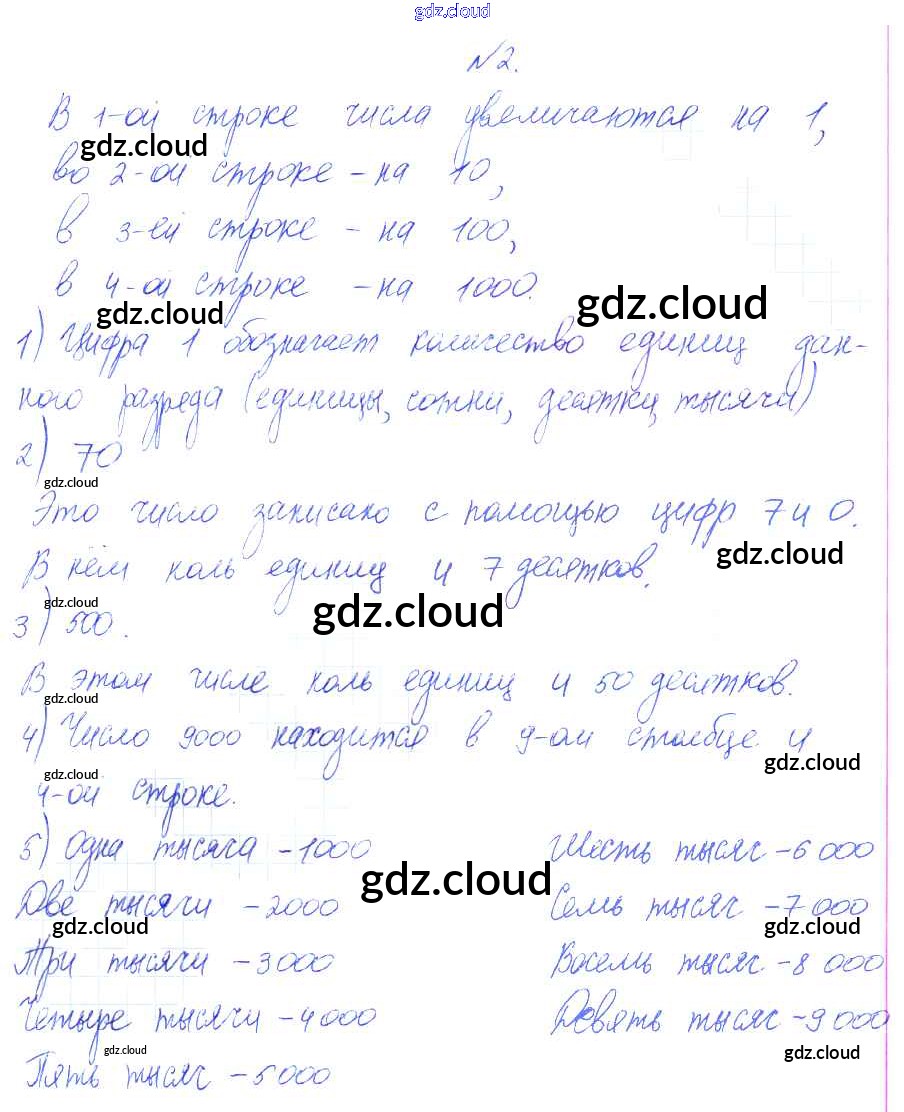 gdz.cloud
№2.
В 1-ой строке числа увеличаются на 1,
gdz.cloud
во 2-ой строке - на 10,
в 3-ей строке - на 100,
в 4-ой строке - на 1000.
gdz.cloud
gdz.cloud
1) Цифра 1 обозначает количество единиц дан-
ного разряда (единицы, сотни, десятки, тысячи)
2) 70
gdz.cloud
Это число записано с помощью цифр 7 и 0.
gdz.cloud
В нём ноль единиц и 7 десятков.
gdz.cloud
gdz.cloud
3) 500.
В этом числе ноль единиц и 50 десятков.
gdz.cloud
4) Число 9000 находится в 9-ом столбце и
gdz.cloud
gdz.cloud
4-ой строке.
5) Одна тысяча - 1000
Шесть тысяч - 6 000
gdz.cloud
Две тысячи - 2000
Семь тысяч - 7 000
gdz.cloud
gdz.cloud
Три тысячи - 3000
Восемь тысяч - 8 000
Четыре тысячи - 4000
Девять тысяч - 9 000
gdz.cloud
gdz.cloud
Пять тысяч - 5000